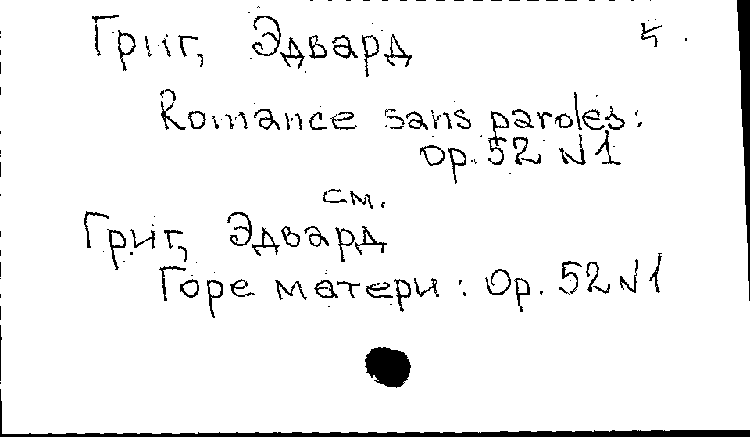 Григ, Эдвард 5.
Romance sans paroles:
Op. 52 N1
см.
Григ, Эдвард
Горе матери: Op. 52 N1